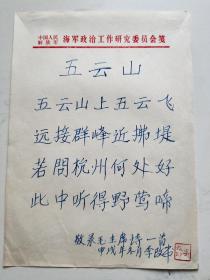 中国人民
解放军 海军政治工作研究委员会笺
五云山
五云山上五云飞
远接群峰近拂堤
若问杭州何处好
此中听得野莺啼
敬录毛主席诗一首